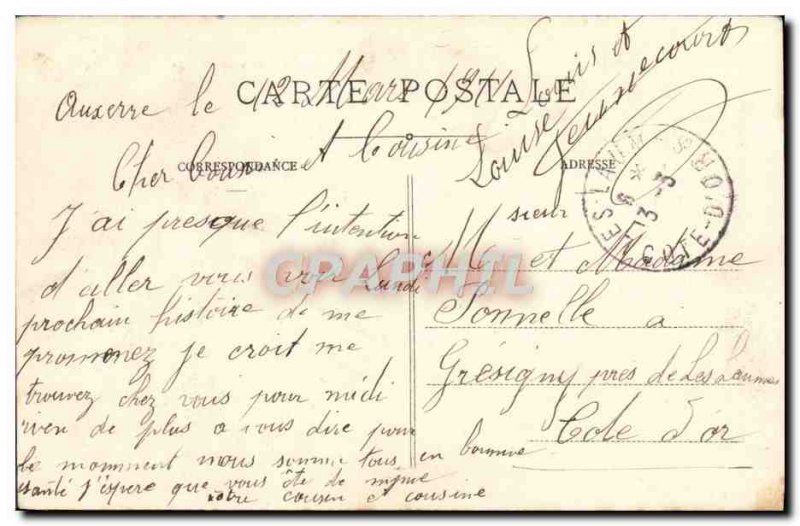 CARTE POSTALE
Auxerre le 12 Mars 1911
CORRESPONDANCE
Cher Cousin et Cousine
J'ai presque l'intention
d'aller vous voir Lundi
prochain histoire de me
promenez je croit me
trouvez chez vous pour midi
rien de plus a vous dire pour
le momment nous somme tous en bonnne
santé j'espere que vous ête de mjme
votre cousin et cousine
Louis et
Louise
ADRESSE
Msieur et Madame
Sonnelle a
Grésigny près de Les Laumes
Cote d'or
LES-LAUMES
13 -3
COTE-D'OR
CPARPHIL